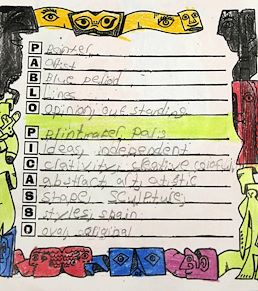 P Painter
A Artist
B Blue period
L Lines
O Opinion, standing
P Printmaker, Paris
I Ideas, independent
C crativity, creative
A abstract art, artistic
S Shape, Sculpture,
S styles, spain
O oval, original